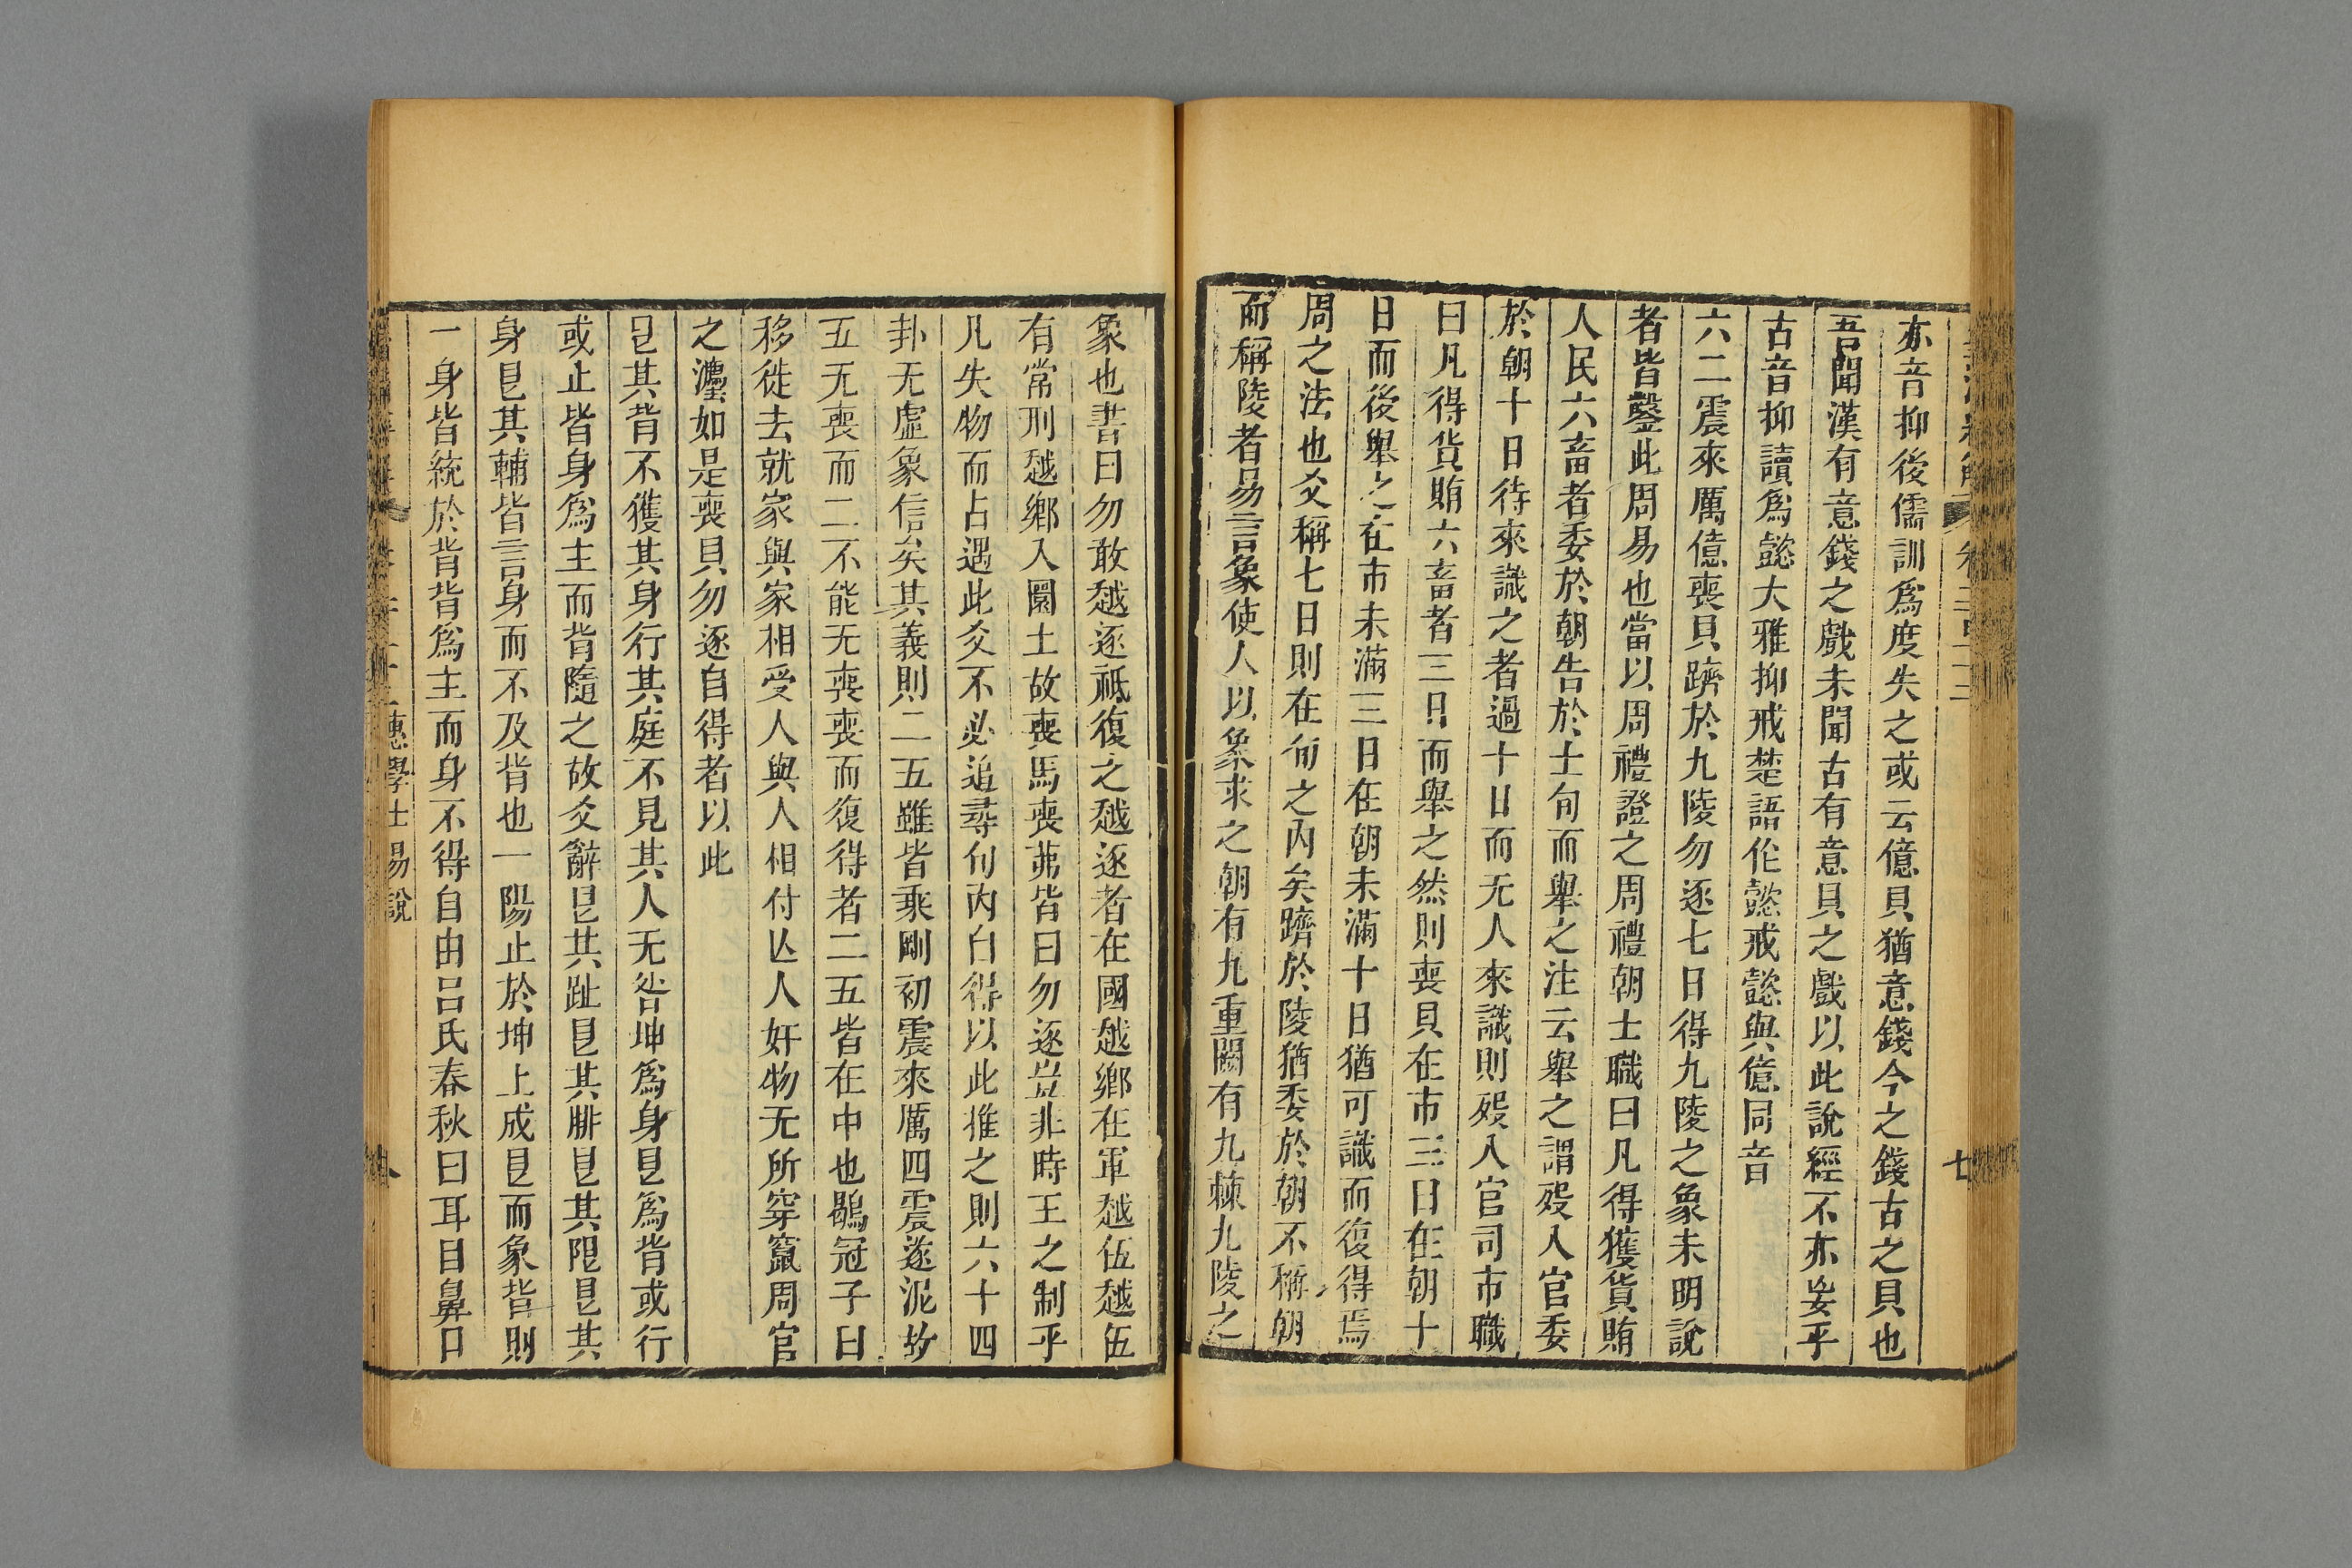 亦音抑後儒訓爲度失之或云億貝猶意錢今之錢古之貝也
吾聞漢有意錢之戲未聞古有意貝之戲以此說經不亦妄乎
古音抑讀爲懿大雅抑戒楚語作懿戒懿與億同音
六二震來厲億喪貝躋於九陵勿逐七日得九陵之象未明說
者皆鑿此周易也當以周禮證之周禮朝士職曰凡得獲貨賄
人民六畜者委於朝告於士旬而舉之注云舉之謂歿入官委
於朝十日待來識之者過十日而无人來識則歿入官司市職
曰凡得貨賄六畜者三日而舉之然則喪貝在市三日在朝十
日而後舉之在市未滿三日在朝未滿十日猶可識而復得焉
周之法也爻稱七日則在旬之內矣躋於陵猶委於朝不稱朝
而稱陵者易言象使人以象求之朝有九重關有九棘九陵之
七
象也書曰勿敢越逐祗復之越逐者在國越鄉在軍越伍越伍
有常刑越鄉入圜土故喪馬喪茀皆曰勿逐豈非時王之制乎
凡失物而占遇此爻不必追尋旬內自得以此推之則六十四
卦无虛象信矣其義則二五雖皆乘剛初震來厲四震遂泥故
五无喪而二不能无喪喪而復得者二五皆在中也鶡冠子曰
移徙去就家與家相受人與人相付亾人奸物无所穿竄周官
之灋如是喪貝勿逐自得者以此
㫔其背不獲其身行其庭不見其人无咎坤爲身㫔爲背或行
或止皆身爲主而背隨之故爻辭㫔其趾㫔其腓㫔其限㫔其
身㫔其輔皆言身而不及背也一陽止於坤上成㫔而象背則
一身皆統於背背爲主而身不得自由呂氏春秋曰耳目鼻口
惠學士易說